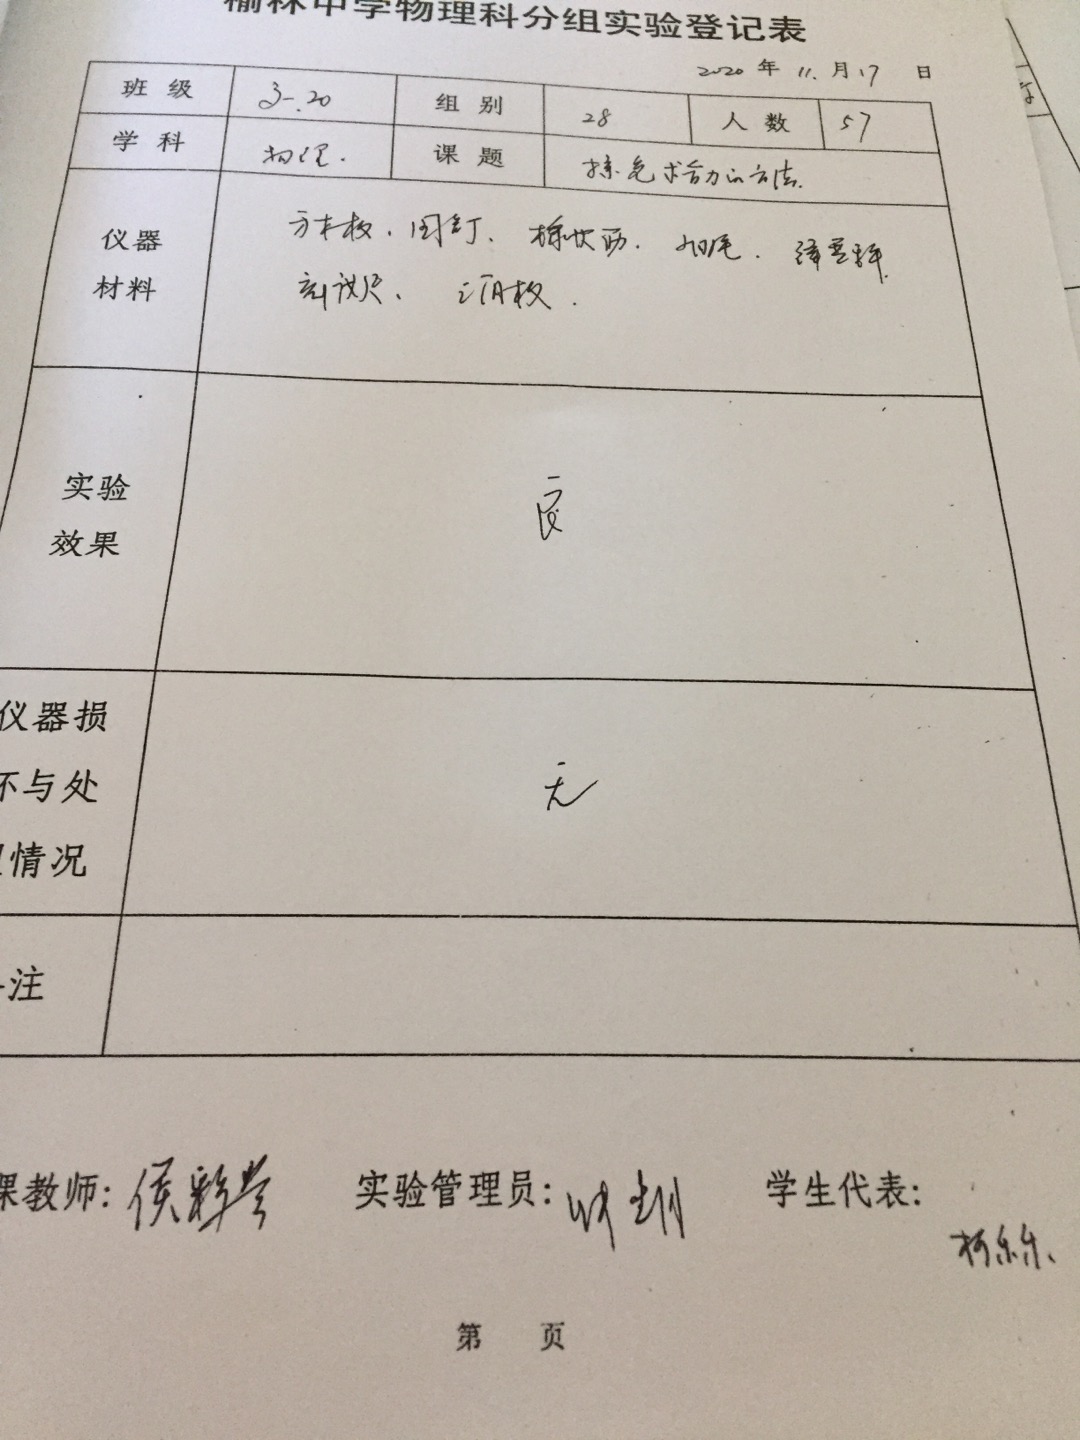 榆林中学物理科分组实验登记表
2020 年 11. 月 17 日
班 级 3-.20 组 别 28 人 数 57
学 科 物理. 课 题 探究求合力的方法.
仪器
材料
方木板、图钉、
刻度尺、三角板.
实验
效果
良
仪器损
坏与处
情况
无
注
课教师: 侯彩 实验管理员: 学生代表:
柯乐乐
第 页